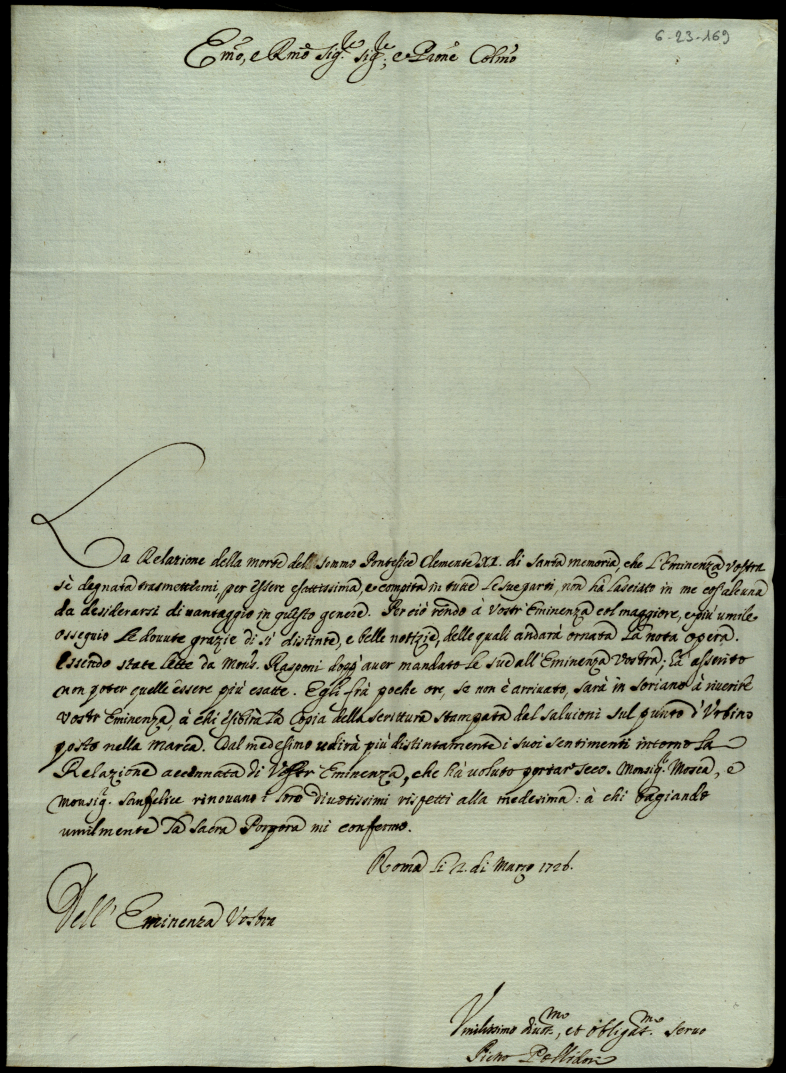 6-23-169
Emo, e Rmo Sig.re Sig.re, e Prone Colmo
La Relazione della morte del Sommo Pontefice Clemente XI. di Santa memoria, che l'Eminenza Vostra
si è degnata trasmettermi, per essere esattissima, e compita in tutte le sue parti, non ha lasciato in me cos'alcuna
da desiderarsi di vantaggio in questo genere. Perciò rendo à Vostr'Eminenza col maggiore, e più umile
ossequio le dovute grazie di sì distinte, e belle notizie, delle quali andarà ornata la nota opera.
Essendo state lette da Mons. Rasponi dopp'aver mandato le sue all'Eminenza Vostra; hà asserito
non poter quelle essere più esatte. Egli frà poche ore, se non è arrivato, sarà in Soriano à riverire
Vostr'Eminenza, à chi esibirà la Copia della scrittura stampata dal Salvioni sul punto d'Urbino
posto nella Marca. Dal medesimo udirà più distintamente i suoi sentimenti intorno la
Relazione accennata di Vostr'Eminenza, che hà voluto portar seco. Monsig. Mosca, e
Monsig. Sanfelice rinovano i loro divotissimi rispetti alla medesima: à chi bagiando
umilmente la Sacra Porpora mi confermo.
Roma li 2. di Marzo 1726.
Dell'Eminenza Vostra
Umilissimo divot.mo, et obligat.mo Servo
Pietro Pollidori